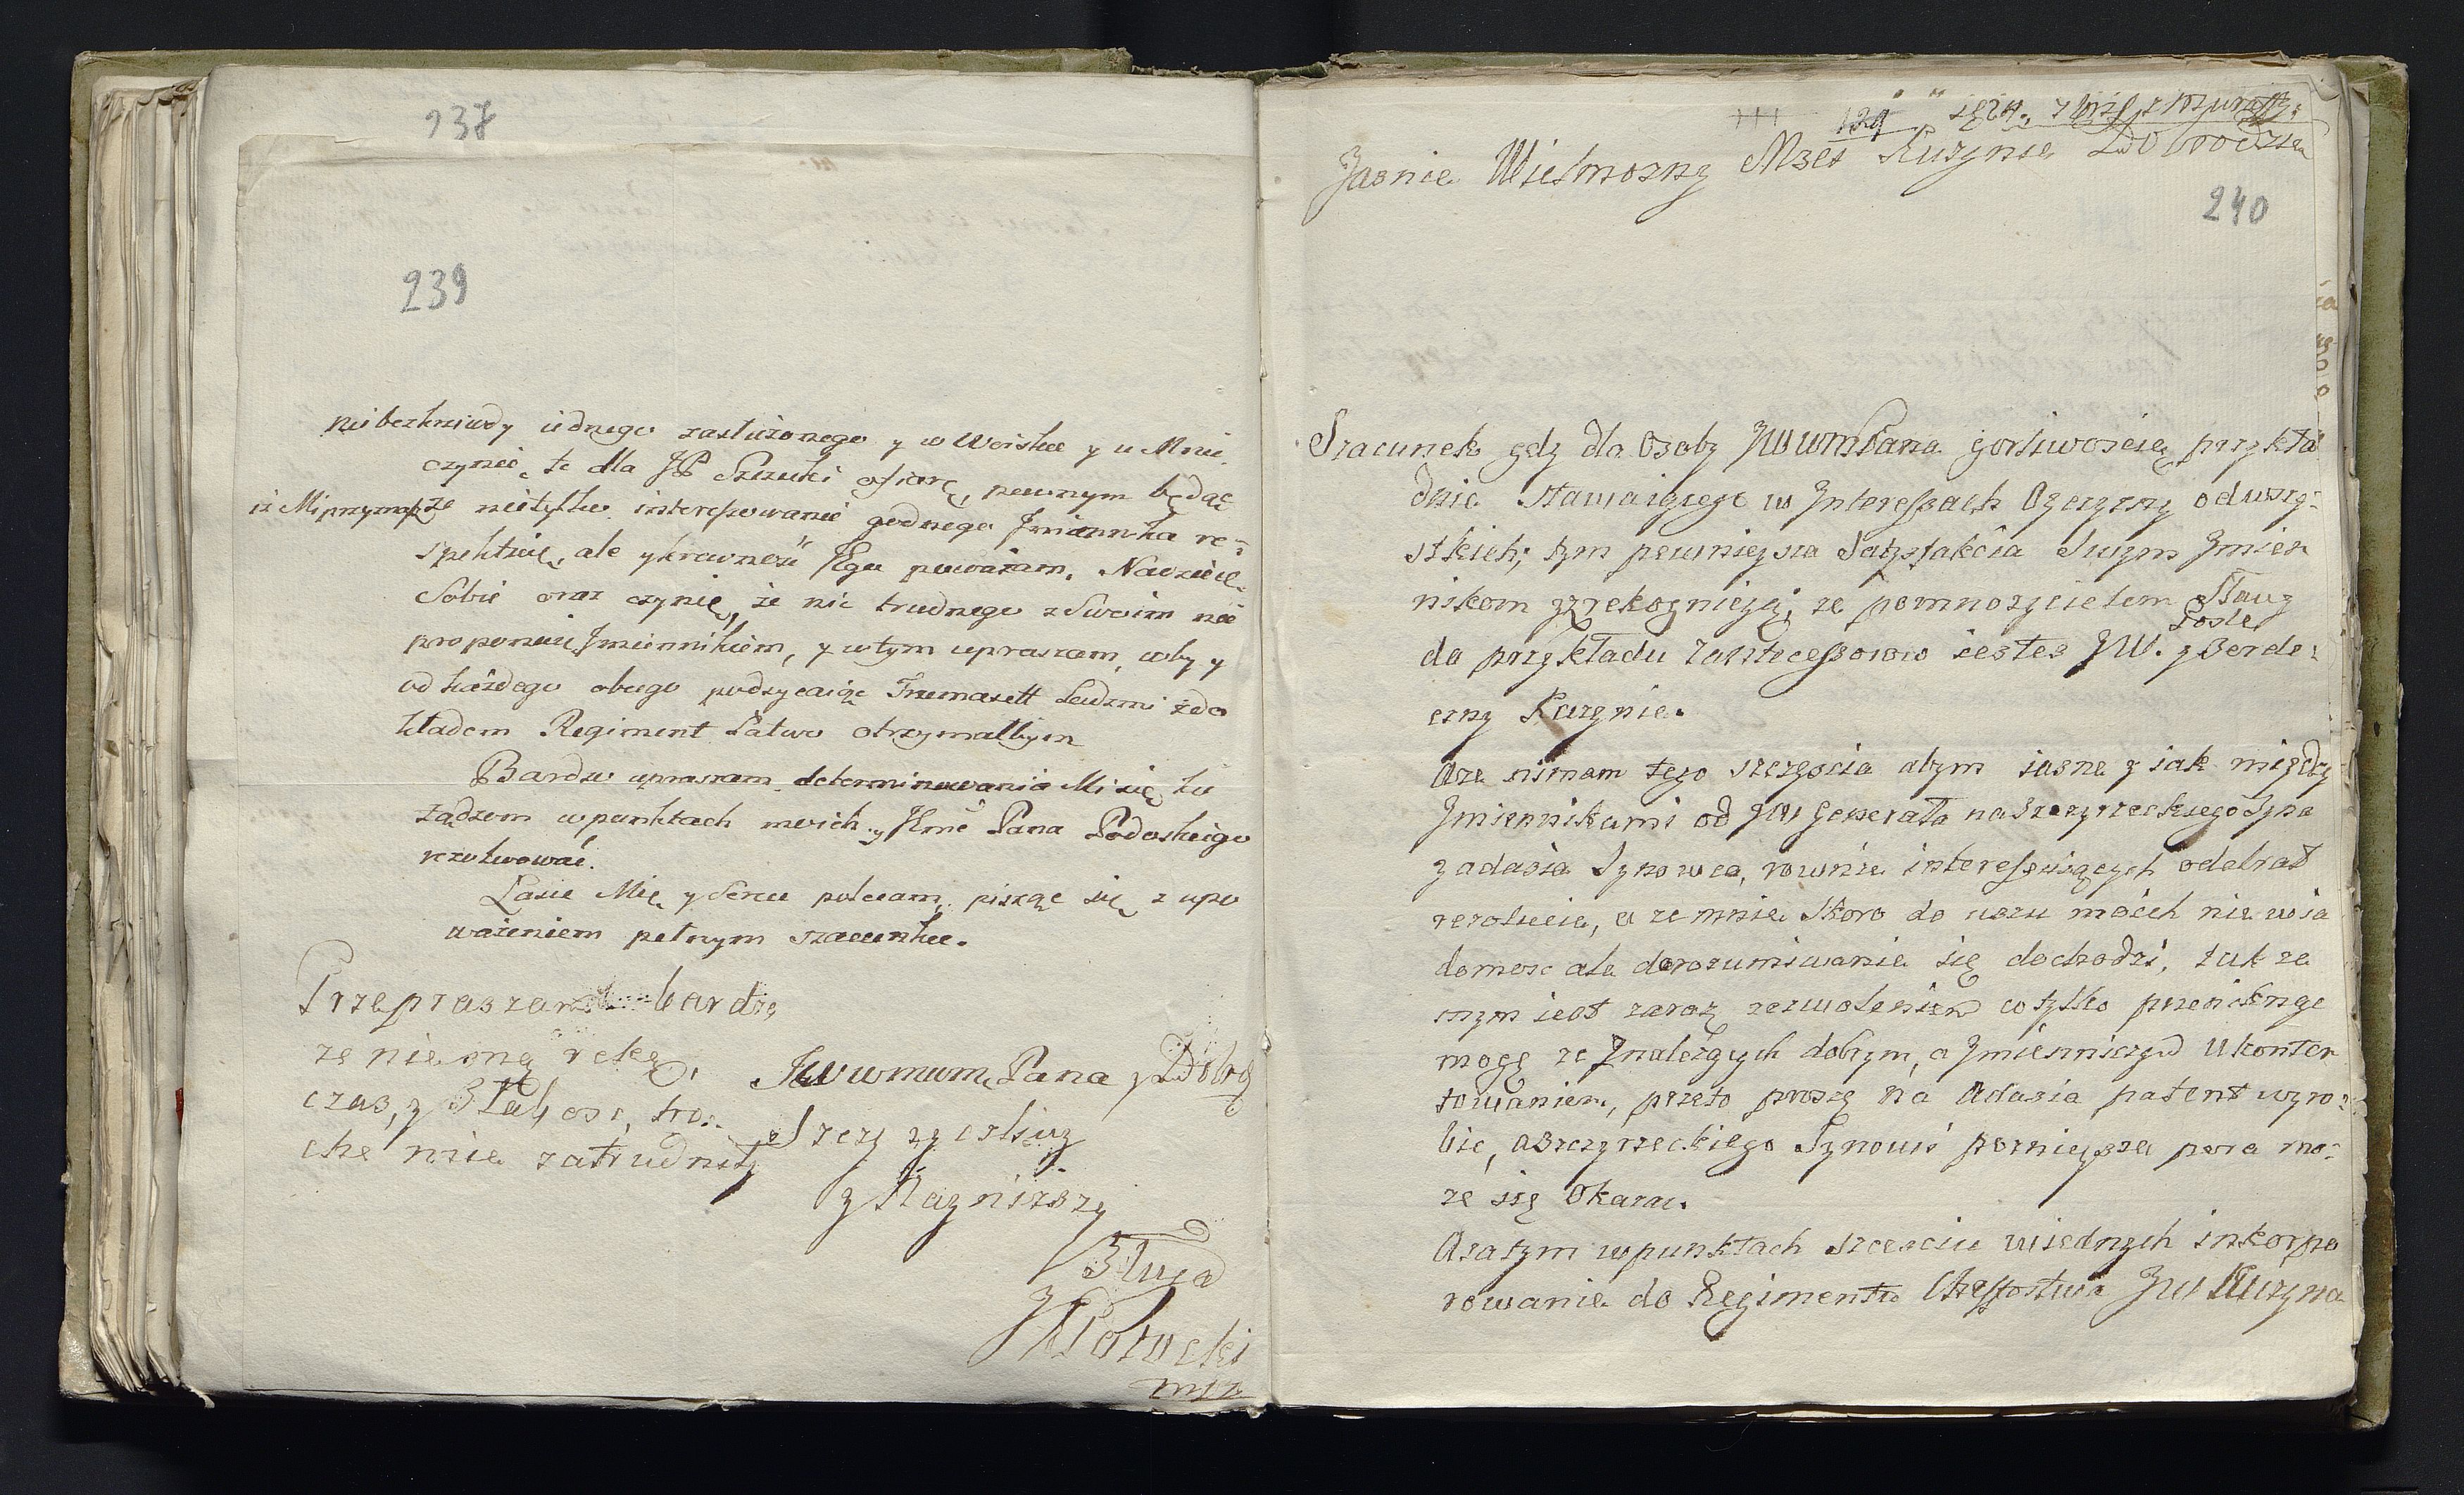 237
239
nie bez krzywdy iednego zasłużonego y w Woisku y u Mnie
czynię, te dla JP Szszuki ofiarę, pewnym będąc
iż Mi przyznasz że nietylko interesowanie godnego Jmiennika re-
spektuię, ale y krewność Jego poważam. Nadzieię
Sobie oraz czynię, że nic trudnego z Swoim nie
proponuię Jmiennikiem, y w tym upraszam, żeby y
od każdego obcego podsycaiąc ludzmi zdo
kładem Regiment Łatwo otrzymałbym
Bardzo upraszam determinowania Mi się ku
żądzom w punktach moich y Jmć Pana Podoskiego
rezolwować.
Łasce Mię y Sercu polecam, pisząc się z upo
ważeniem pełnym szacunku.
Przepraszam bardzo
ze nie mą ręką,
czas, y Słabosc, tro-
che mie zatrudniły
JWWMM Pana y Dobrg
Szczyrzyczliwy
y Nayniższy
Sługa
JPotocki
mpr
129
Jasnie Wielmozny Mści Kuzynie Dobrodzieiu
240
Szacunek gdy dla Osoby JWWMPana gorliwoscią przykła
dnie stawaiącego w Interessach Oyczyzny od wszy-
stkich; tym pewnieysza Satysfakcia Swym Jmien
nikom ze pomnozycielem Sławy
Posle
do przykładu zantecessorow iestes JW. y Serde-
czny Kuzynie.
Aze nimam tego szczęscia abym iasne y iak między
Jmiennikami od JW Generała na Szczyrzeckiego Syna
y adasia Synowca, rownie interessuiących odebrał
rezolucie, a ze mnie skoro do uszu moich nie wia
domosc ale dorozumiwanie się dochodzi, tak ze
mym iest zaraz zezwoleniem co tylko przeniknąc
mogę ze Jnalezących dobrym, a Jmienniczym Ukonten
towaniem, przeto proszę na Adasia patent wyro-
bic, a Szczyrzeckiego Synowi pozniejsza pora mo-
ze się Okazac.
A za tym w punktach szesciu w iednych inkorpo
rowanie do Regimentu Chessostwa JW Kuzyna